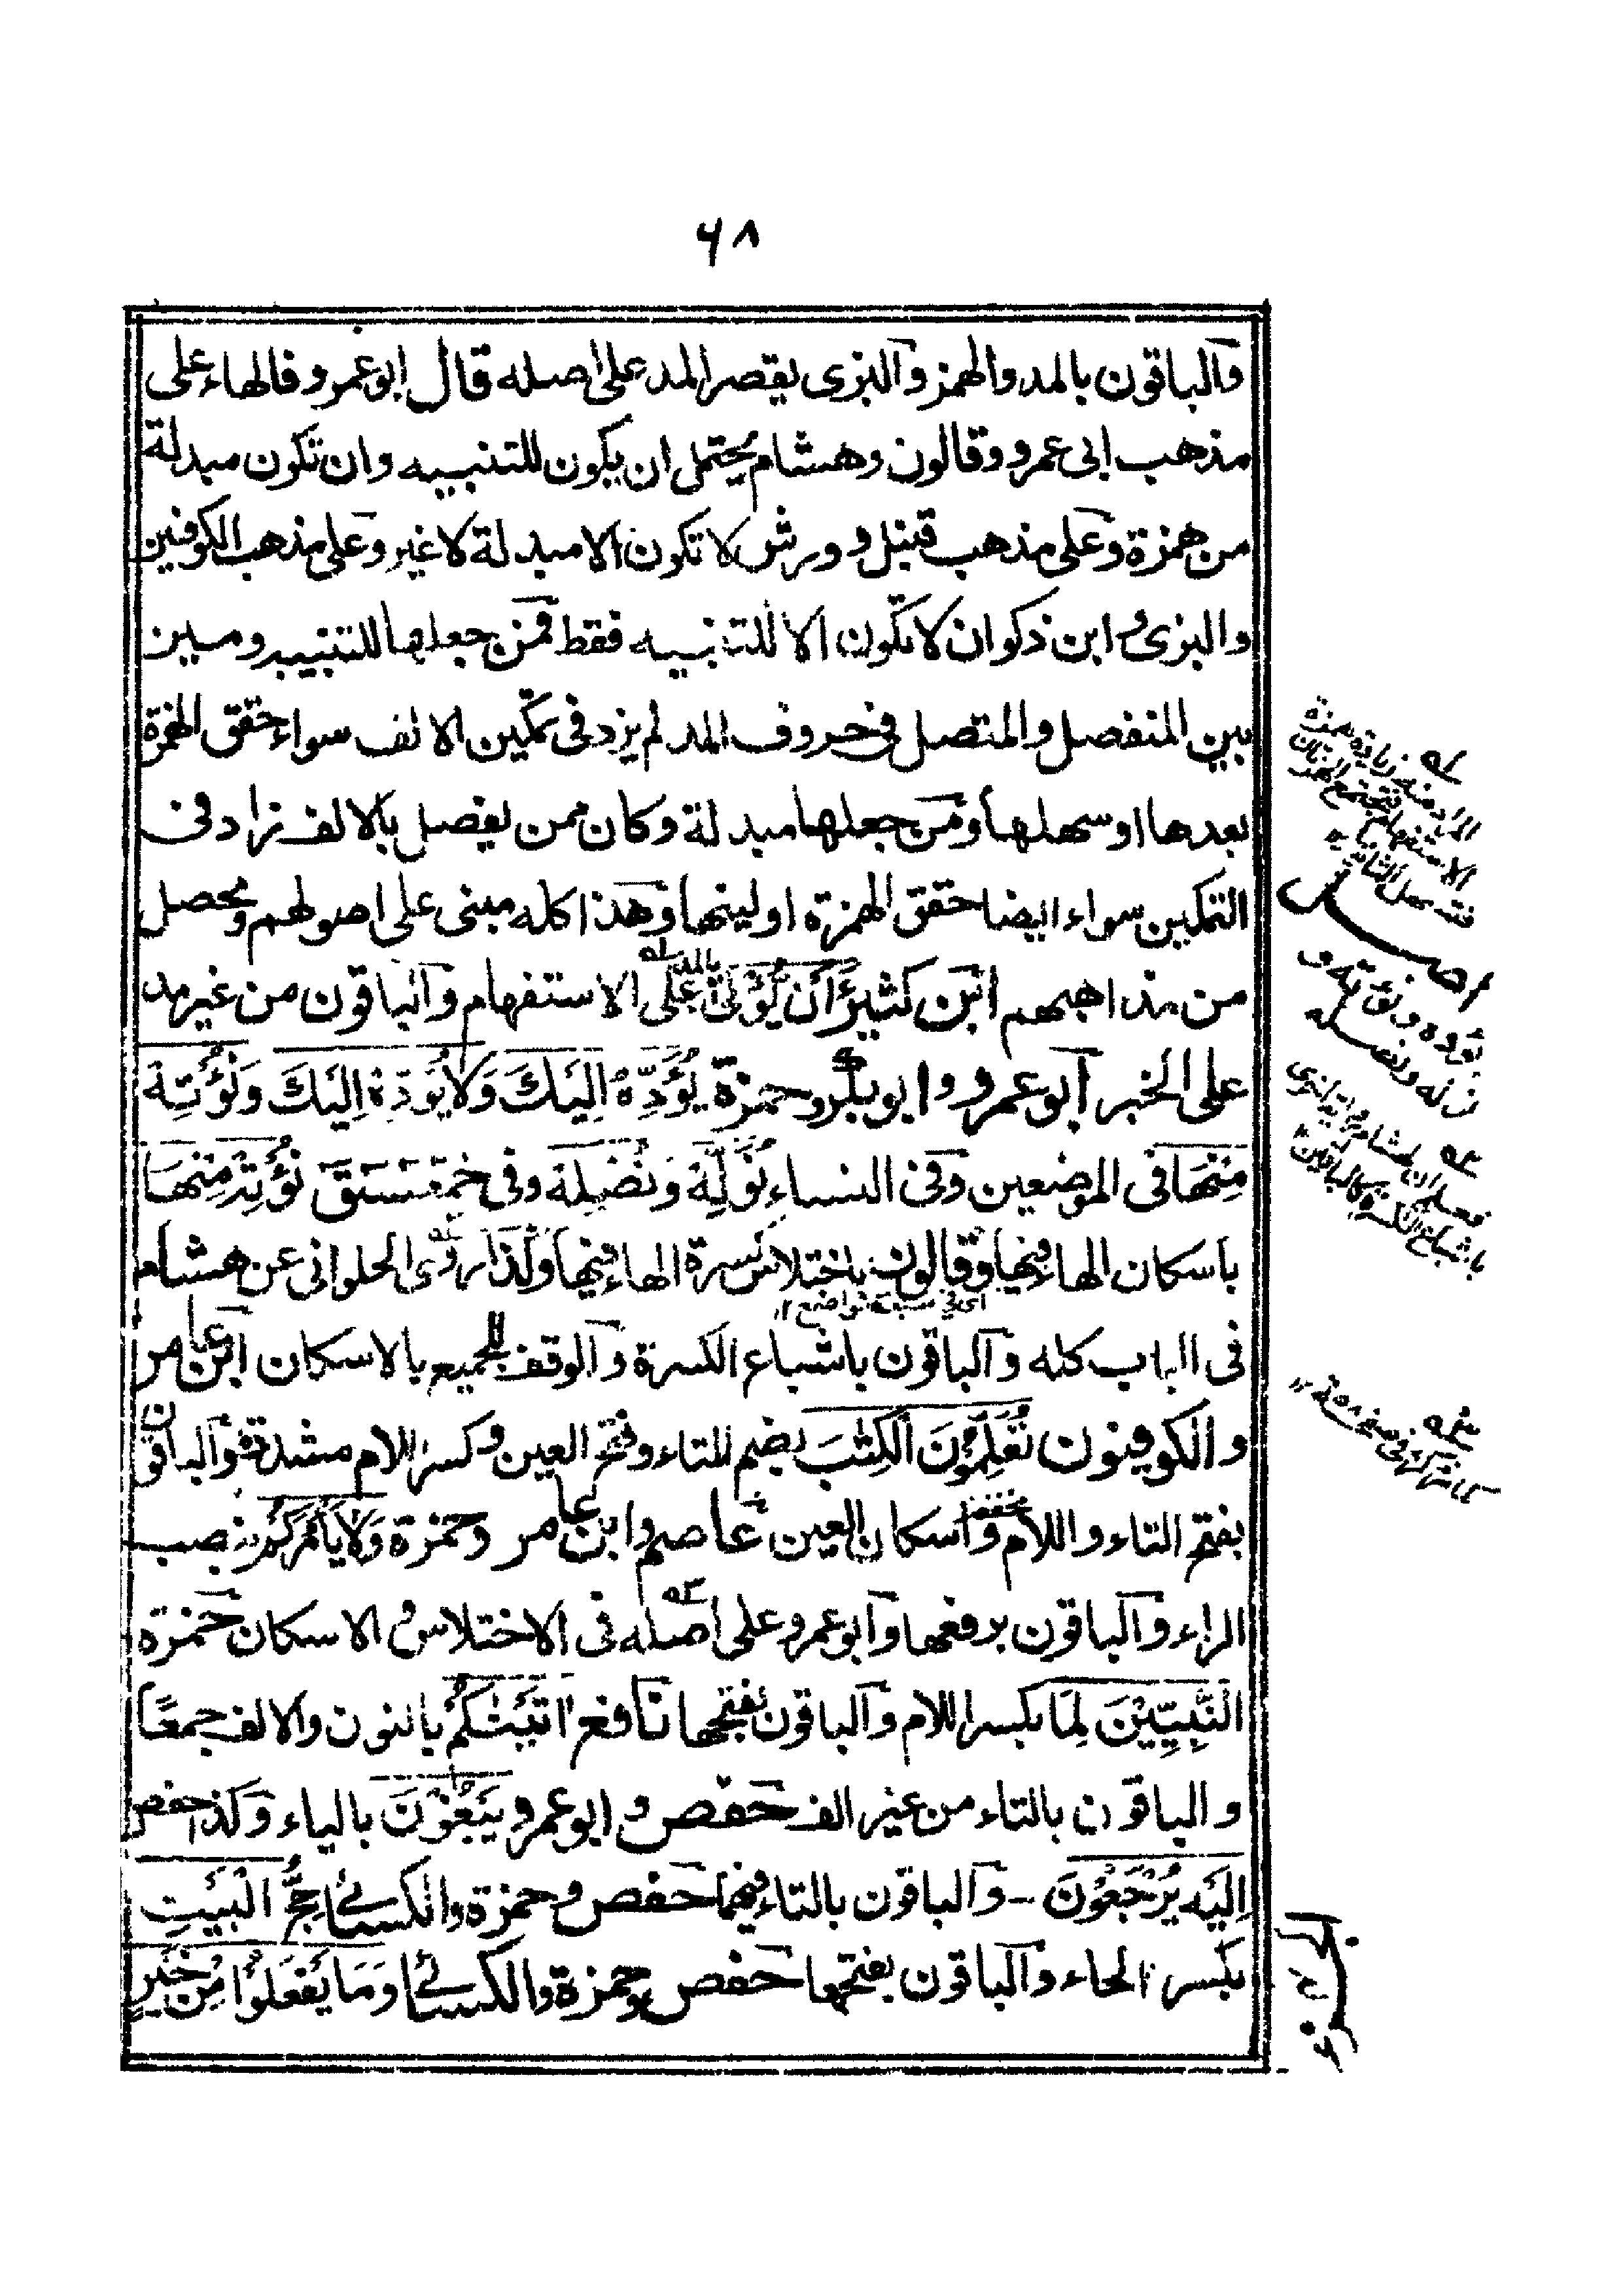 ٦٨
والباقون بالمد والهمز والبزى يقصر المد على اصله قال ابو عمرو فالهاء على
مذهب ابى عمرو وقالون وهشام يحتمل ان يكون للتنبيه وان تكون مبدلة
من همزة وعلى مذهب قنبل و ورش لا تكون الا مبدلة لا غير وعلى مذهب الكوفيين
والبزى و ابن ذكوان لا تكون الا للتنبيه فقط فمن جعلها للتنبيه وميز
بين المنفصل والمتصل فى حروف المد لم يزد فى تمكين الالف سواء حقق الهمزة
بعدها او سهلها ومن جعلها مبدلة وكان ممن يفصل بالالف زاد فى
التمكين سواء ايضا حقق الهمزة او لينها وهذا كله مبنى على اصولهم ومحصل
من مذاهبهم ابن كثير أَنْ يُّؤْتىٰ بالمد على الاستفهام والباقون من غير مد
على الخبر ابو عمرو و ابو بكر وحمزة يُؤَدِّهْ اِلَيْكَ وَلَا يُؤَدِّهْ اِلَيْكَ وَنُؤْتِهْ
مِنْهَا فى الموضعين وفى النساء نُوَلِّهْ وَنُصْلِهْ وفى حمعسق نُؤْتِهْ مِنْهَا
باسكان الهاء فيها وقالون باختلاس كسرة الهاء فيها وكذا روى الحلوانى عن هشام
اى فى سبعة مواضع ١٢
فى الباب كله والباقون باشباع الكسرة والوقف للجميع بالاسكان ابن عامر
والكوفيون تُعَلِّمُوْنَ الْكِتٰبَ بضم التاء وفتح العين وكسر اللام مشددة والباقون
بفتح التاء واللام مخففة واسكان العين عاصم وابن عامر وحمزة وَلَا يَأْمُرَكُمْ بنصب
الراء والباقون برفعها وابو عمرو على اصله فى الاختلاس والاسكان حمزة
النَّبِيّٖنَ لِمَا بكسر اللام والباقون بفتحها نافع اٰتَيْنٰكُمْ بالنون والالف جمعًا
والباقون بالتاء من غير الف حفص و ابو عمرو يَبْغُوْنَ بالياء وكذا حفص
اِلَيْهِ يُرْجَعُوْنَ - والباقون بالتاء فيهما حفص وحمزة والكسائى حِجُّ الْبَيْتِ
بكسر الحاء والباقون بفتحها حفص وحمزة والكسائى وَمَا يَفْعَلُوْا مِنْ خَيْرٍ